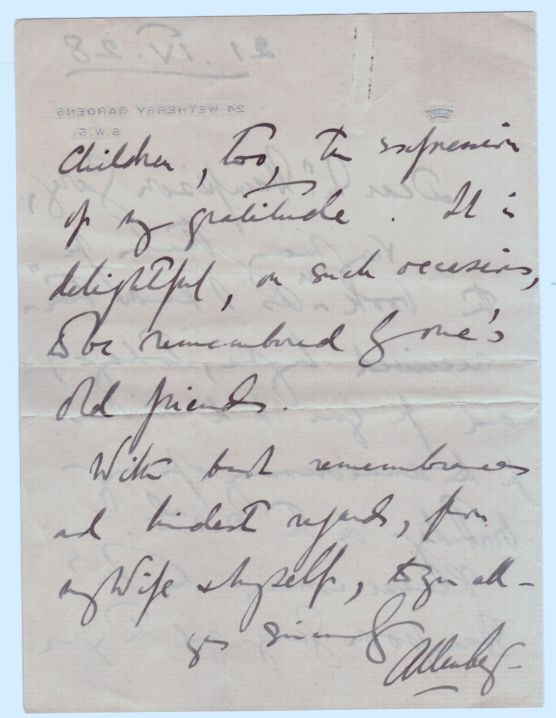 21.IV.28
24 WETHERBY GARDENS
S.W.5.
Children, too, the expression
of my gratitude. It is
delightful, on such occasions,
to be remembered by one's
old friends.
With best remembrances
and kindest regards, from
my Wife & myself, to you all -
yrs sincerely
Allenby